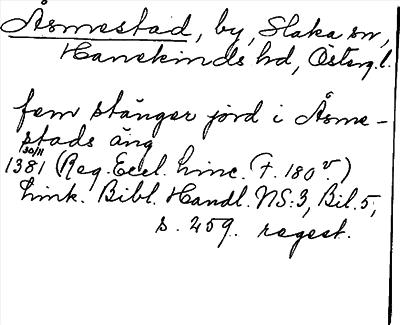 Åsmestad, by, Slaka sn,
Hanekinds hd, Österg. l.
fem stänger jord i Åsme-
stads äng
30/11
1381 (Reg. Eccl. Linc. (f. 180 v.)
Link. Bibl. Handl. NS: 3, Bil. 5,
s. 259. regest.